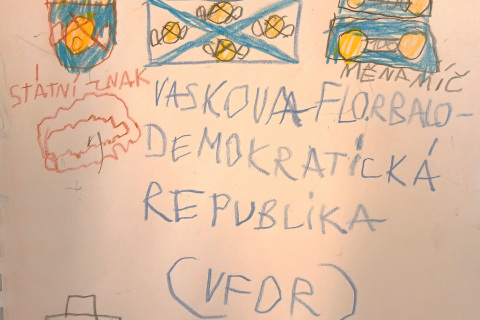 STÁTNÍ ZNAK
MĚNA MÍČ
VASKOVA FLORBALO-
DEMOKRATICKÁ
REPUBLIKA
(VFDR)